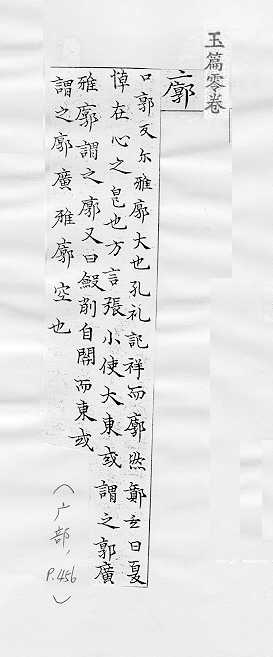 玉篇零卷
廓
口郭反尔雅廓大也孔礼記祥而廓然鄭玄曰夏
悼在心之皃也方言張小使大東或謂之郭廣
雅廓謂之廓又曰㲉削自関而東或
謂之廓廣雅廓空也
(广部, P.456)